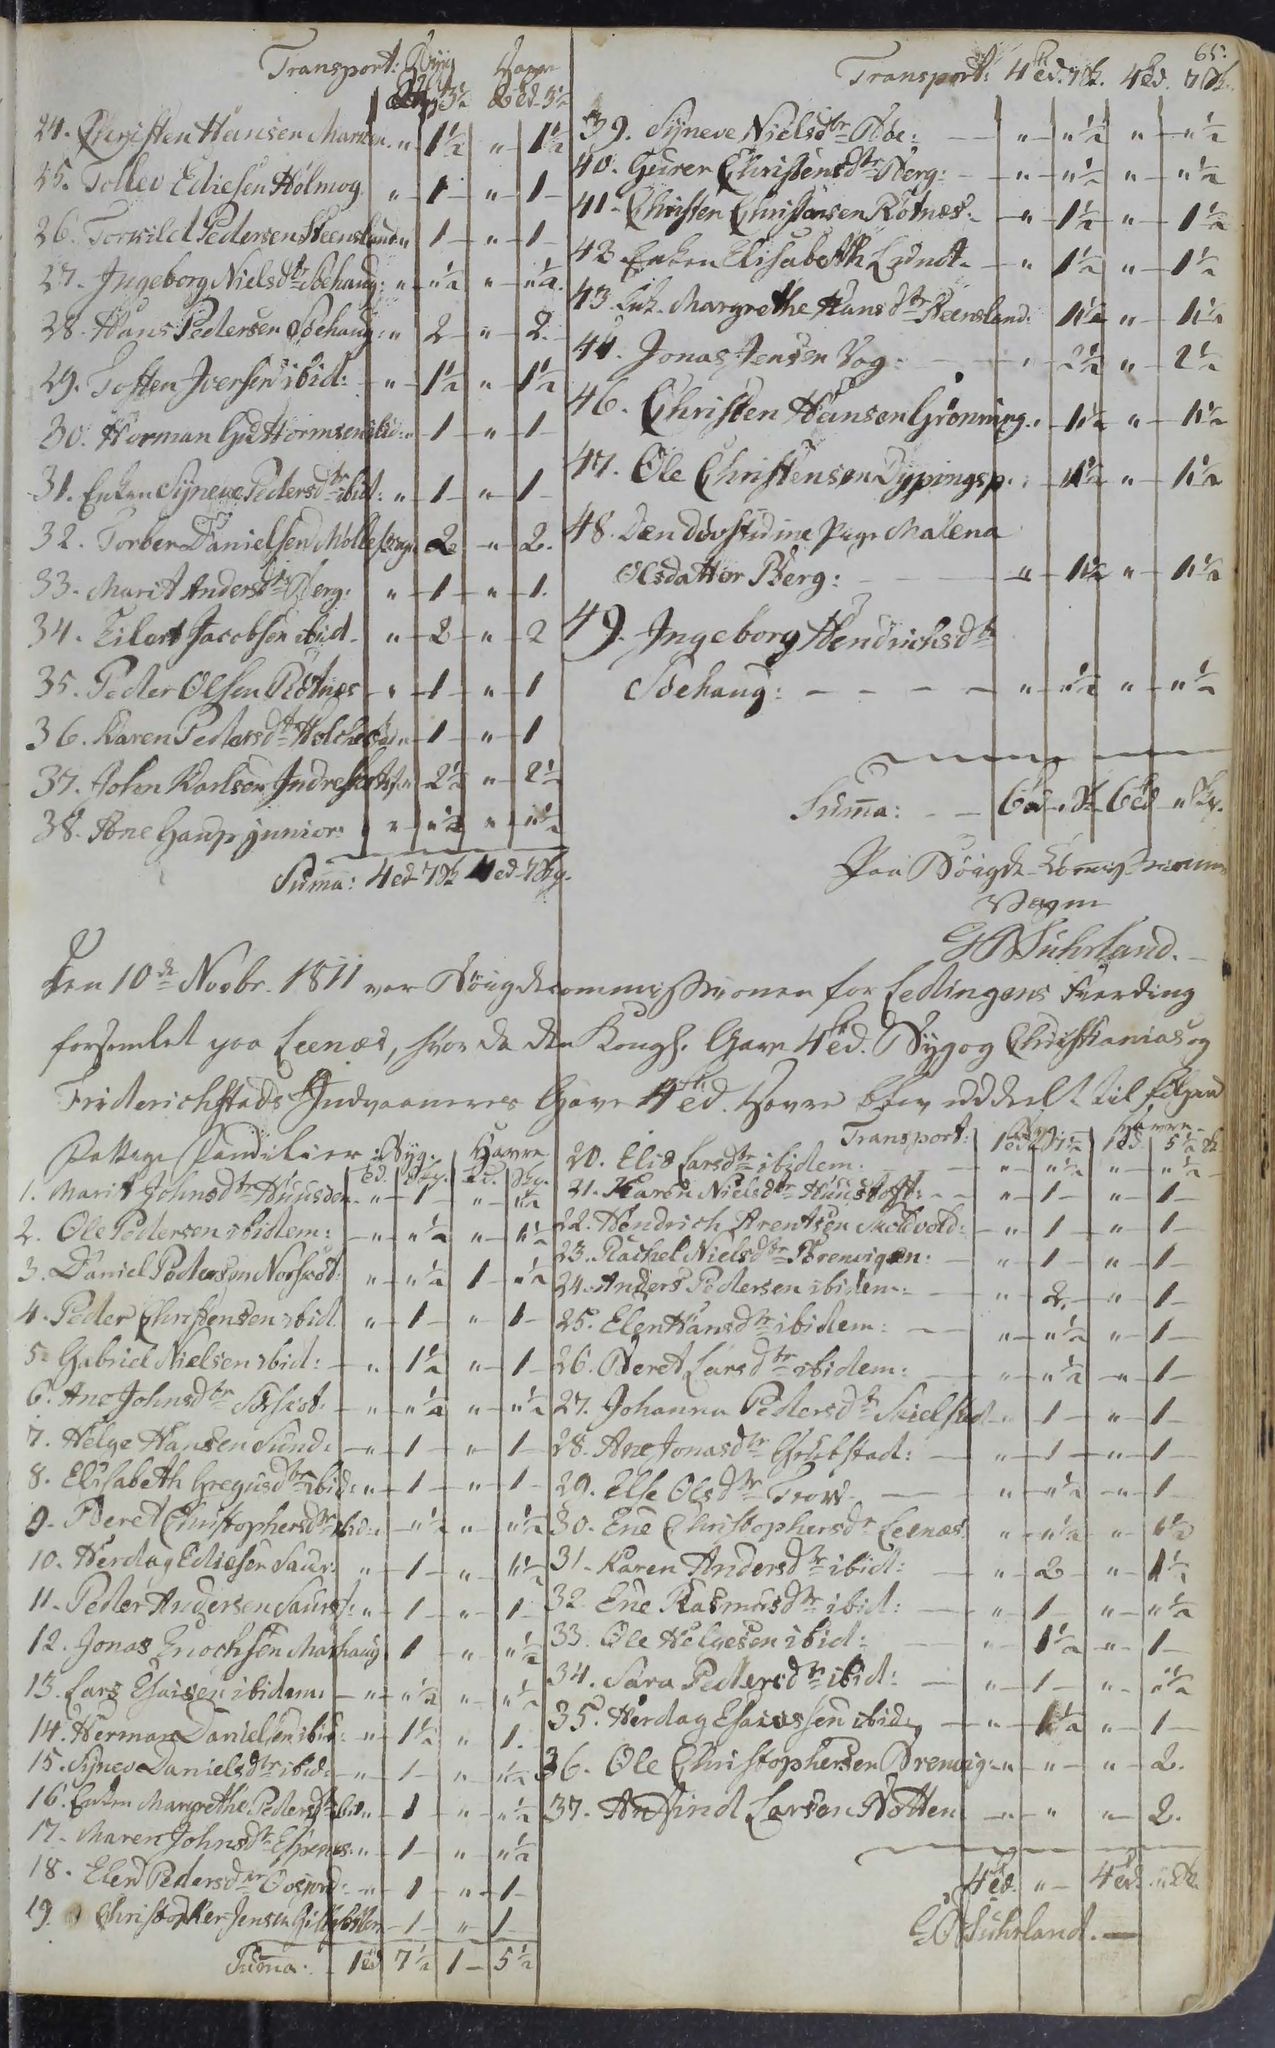 Transport: Byg Havre
3½ 3½
24. Christen Hansen Marken. " 1½ " 1½
25. Tollev Ediesen Holmog " 1 " 1
26. Torkild Pedersen Steensland " 1 " 1
27. Ingeborg Nielsdtr Sdehaug: " "½ " "½
28. Hans Pedersen Sdehaug: " 2 " 2
29. Totten Iversen ibid: " 1½ " 1½
30. Herman Guttormsen ibid: " 1 " 1
31. Enken Synneve Pedersdtr ibid: " 1 " 1
32. Torber Danielsen " 2 " 2.
33. Marit Andersdtr Berg: " 1 " 1.
34. Eilert Jacobsen ibid. " 2 " 2
35. Peder Olsen Rotnæs " 1 " 1
36. Karen Pedersdtr " 1 " 1
37. Johan Karlsen " 2½ " 2½
38. Ane Haup junior: " "½ " "½
Summa: 4ed 7 4ed 7
65.
Transport: 4ed. 7 4ed. 7
39. Synneve Nielsdtr Boe: " "½ " "½
40. Guren Christensdtr Berg: " "½ " "½
41. Christen Christensen Rotnæs. " 1½ " 1½
42. Enken Elisabeth Lundt. " 1½ " 1½
43. Margrethe Hansdtr Steensland: 1½ " 1½
44. Jonas Jensen Vog: " 2½ " 2½
46. Christen Hansen Grønning. " 1½ " 1½
47. Ole Christensen Dypingsp. : 1½ " 1½
48. Den døvstumme Pige Malena
Olsdatter Berg: " 1½ " 1½
49. Ingeborg Hendrichsdtr
Sdehaug: " "½ " "½
Summa: 6ed " 6ed "
Paa Bøigde Commissionens
Vegne
G B Suhrland.
Den 10de Novbr. 1811 var Bøigdecommissionen for Lødingens Fierding
forsamlet paa Leenæs, hvor da den Kongl. Gave 4ed. Byg og Christianias og
Friderichstads Indvaaneres Gave 4ed. Havre blev uddeelt til følgende
Familier: Byg. Havre
1. Marit Johnsdtr " 1 " "½
2. Ole Pedersen ibidem: " "½ " "½
3. Daniel Pedersen Norskot: " "½ 1 "½
4. Peder Christensen ibid. " 1 " 1
5. Gabriel Nielsen ibid: " 1½ " 1
6. Ane Johnsdtr Sørskot. " "½ " "½
7. Helge Hansen Sund: " 1 " 1
8. Elisabeth Gregusdtr ibid: " 1 " 1
9. Beret Christophersdtr ibid: "½ " "½
10. Herdag Ediesen Saur: " 1 " "½
11. Peder Andersen " 1 " 1
12. Jonas Enochsen Marhaug 1 " "½
13. Lars Esaisen ibidem: " "½ " "½
14. Herman Danielsen ibid: " 1½ " 1.
15. Synev Danielsdtr ibid: " 1 " "½
16. Enken Margrethe Pedersdtr ibid " 1 " "½
17. Maren Johnsdtr " 1 " "½
18. Elen Pedersdtr " 1 " 1
19. Christopher Jensen 1 " 1
Summa. 1ed 7½ 1 5½
Transport: 1ed 7½ 1ed. 5½
20. Elis Larsdtr ibidem. " "½ " "½
21. Karen Nielsdtr " 1 " 1
22. Hendrich Arentsen " 1 " 1
23. Rachel Nielsdtr Brenvigen: " 1 " 1
24. Anders Pedersen ibidem: " 2 " 1
25. Elen Hansdtr ibidem: " "½ " 1
26. Beret Larsdtr ibidem: " "½ " 1
27. Johanna Pedersdtr Skielstad " 1 " 1
28. Ane Jonasdtr " 1 " 1
29. Else Olsdtr " "½ " 1
30. Ene Christophersdr Leenæs " "½ " 1½
31. Karen Andersdtr ibid: " 2 " 1½
32. Ene Rasmusdtr ibid: " 1 " "½
33. Ole Helgesen ibid: " 1½ " 1
34. Sara Pedersdtr ibid: " 1 " "½
35. Herdag Esaiassen ibid: " 1½ " 1
36. Ole Christophersen Brenvig. " " " 2.
37. Anfind Larsen Notten " " 2.
4ed. " 4ed. "
G B Suhrland.